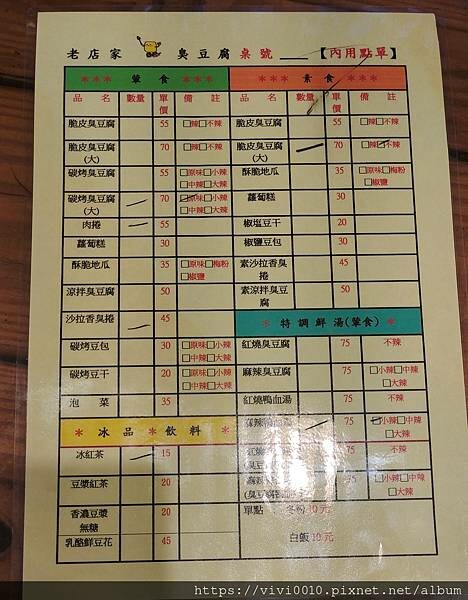 老店家 臭豆腐 桌號 ___ 【內用點單】
*** 葷 食 ***
品 名 數量 單價 備 註
脆皮臭豆腐 55 □辣□不辣
脆皮臭豆腐(大) 70 □辣□不辣
碳烤臭豆腐 55 □原味□小辣 □中辣□大辣
碳烤臭豆腐(大) 70 □原味□小辣 □中辣□大辣
肉捲 55
蘿蔔糕 30
酥脆地瓜 35 □原味□梅粉 □椒鹽
涼拌臭豆腐 50
沙拉香臭捲 45
碳烤豆包 30 □原味□小辣 □中辣□大辣
碳烤豆干 20 □原味□小辣 □中辣□大辣
泡 菜 35
* 冰品 * 飲料 *
冰紅茶 15
豆漿紅茶 20
香濃豆漿 無糖 20
乳酪鮮豆花 45
*** 素 食 ***
品 名 數量 單價 備 註
脆皮臭豆腐 55 □辣□不辣
脆皮臭豆腐(大) 70 □辣□不辣
酥脆地瓜 35 □原味□梅粉 □椒鹽
蘿蔔糕 30
椒塩豆干 20
椒鹽豆包 30
素沙拉香臭捲 45
素涼拌臭豆腐 50
* 特調鮮湯(葷食) *
紅燒臭豆腐 75 不辣
麻辣臭豆腐 75 □小辣□中辣 □大辣
紅燒鴨血湯 75 不辣
麻辣鴨血湯 75 □小辣□中辣 □大辣
75 不辣
75 □小辣□中辣 □大辣
單點 冬粉10元
白飯10元
https://vivi0010.pixnet.net/album